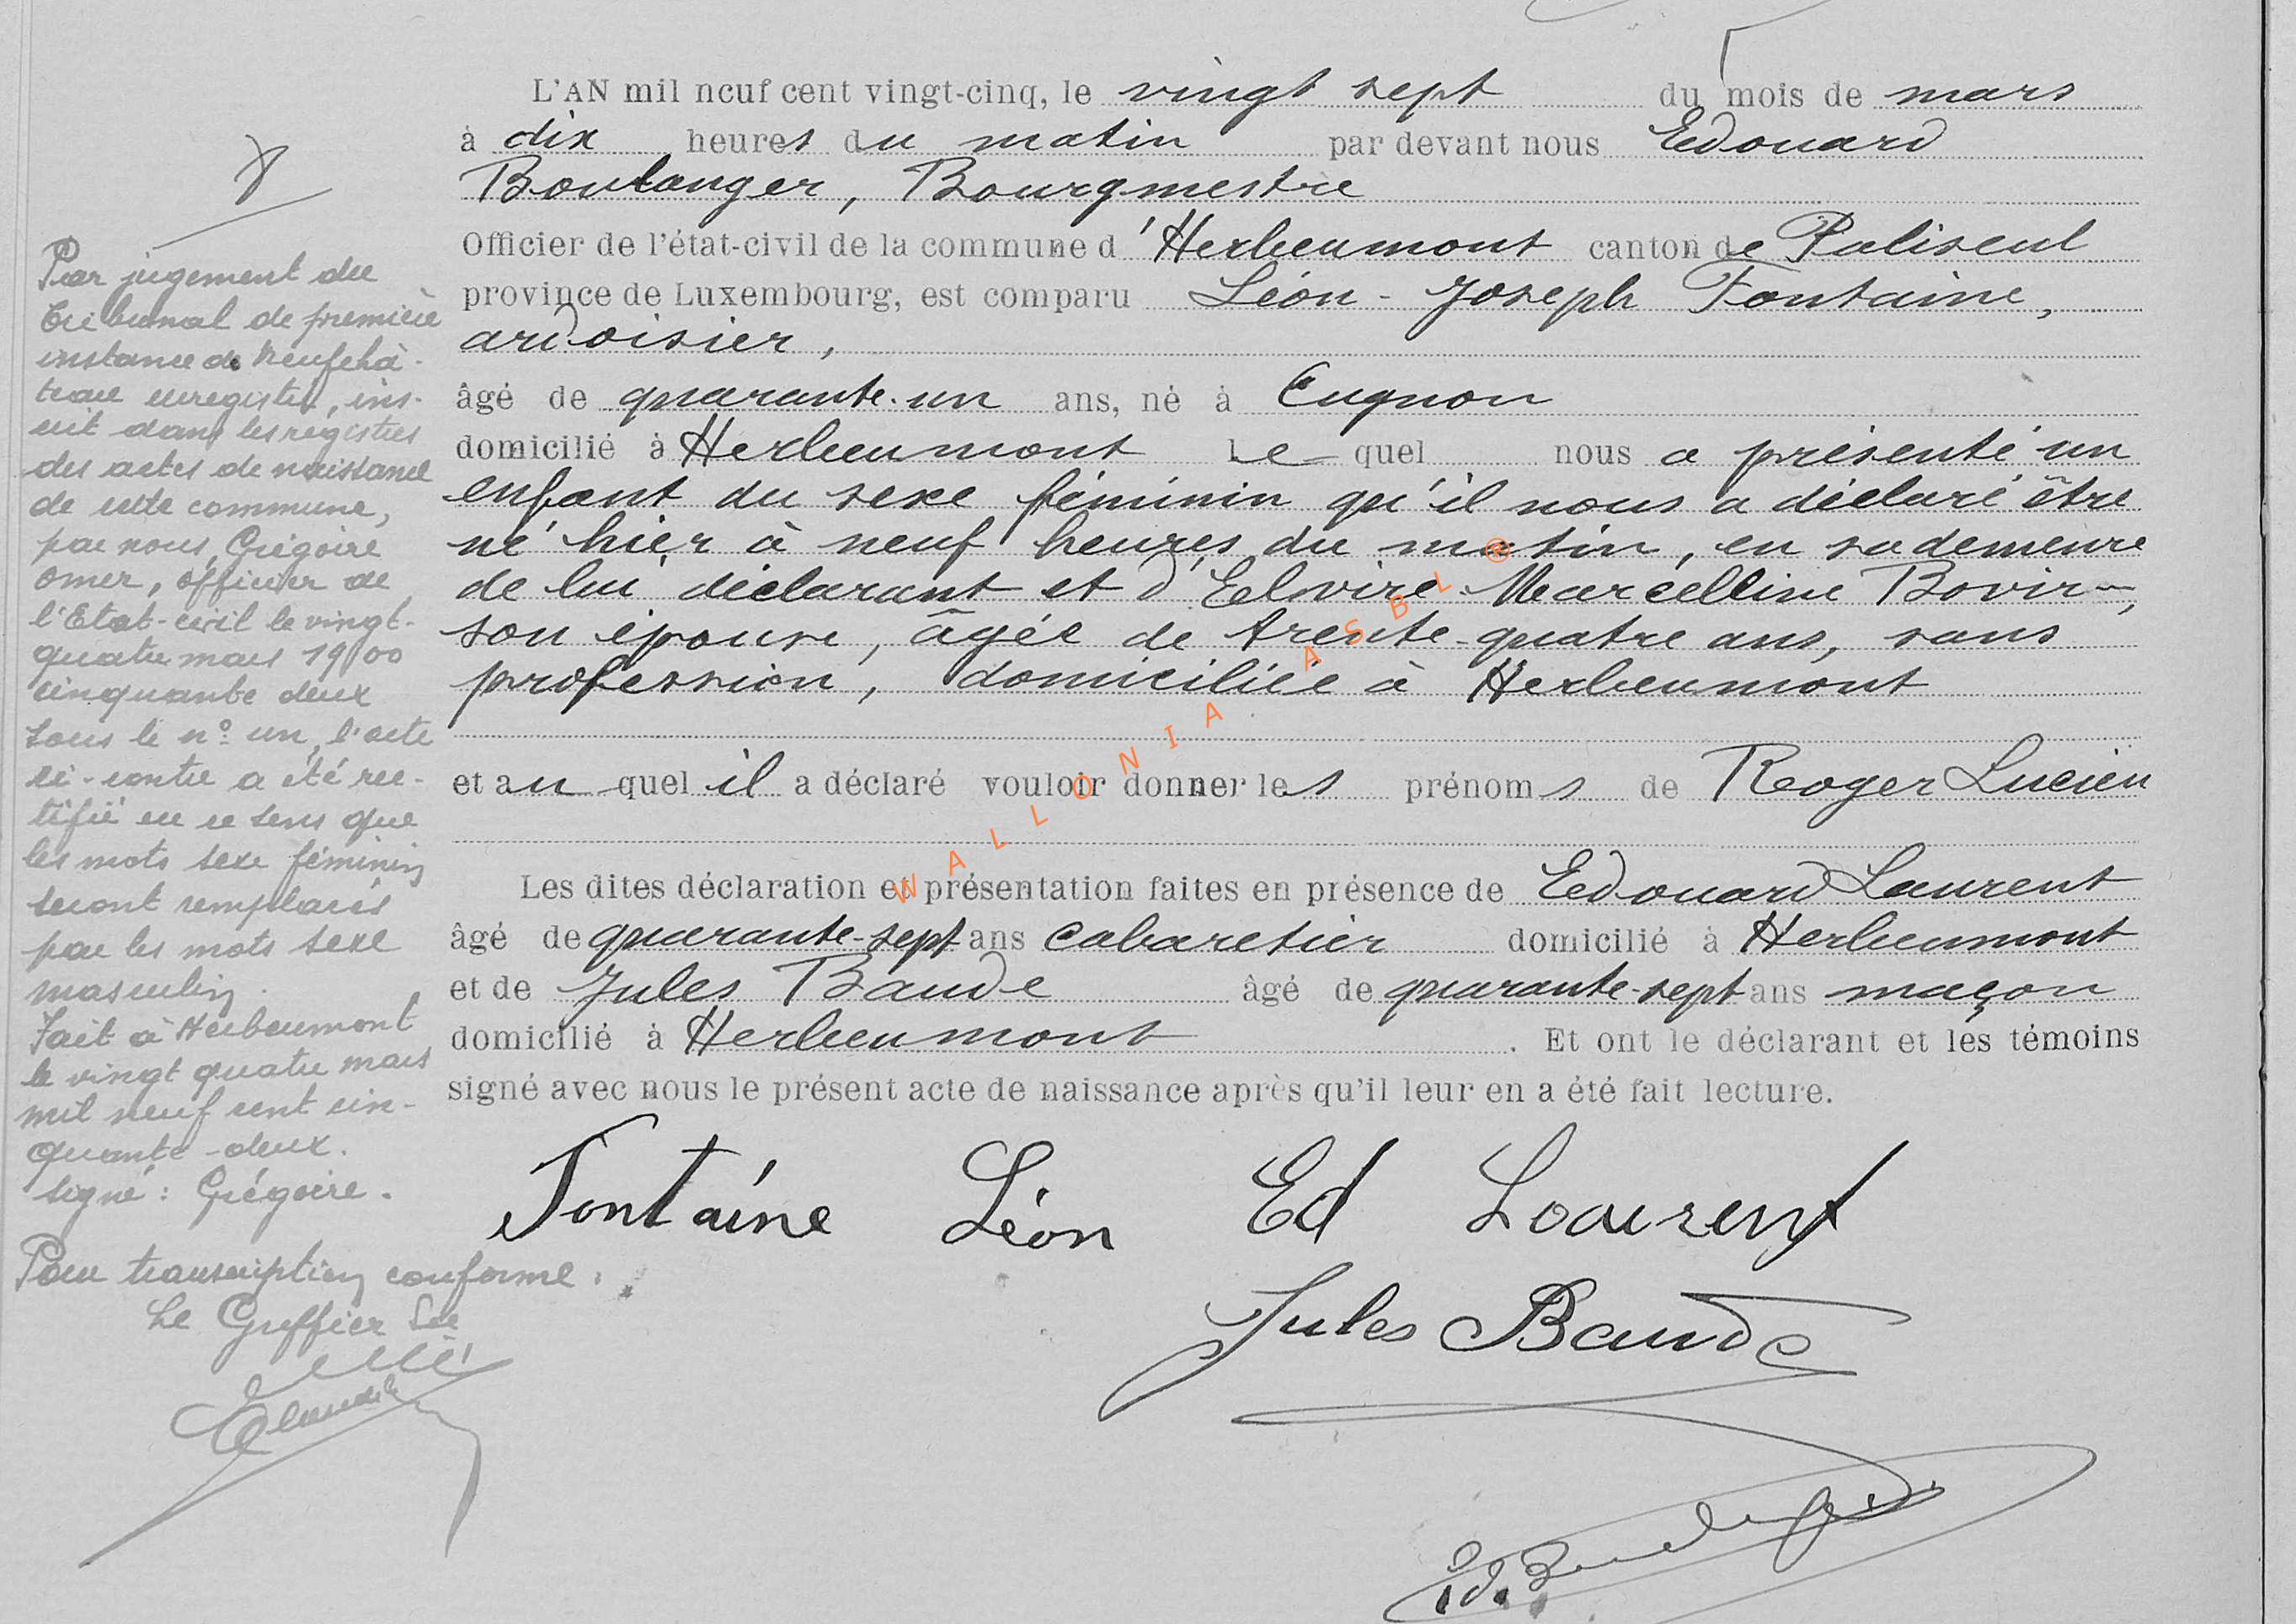 L'AN mil neuf cent vingt-cinq, le vingt sept du mois de mars
à dix heures du matin par devant nous Edouard
Boulanger, Bourgmestre
Officier de l'état-civil de la commune d'Herbeumont canton de Paliseul
province de Luxembourg, est comparu Léon-Joseph Fontaine,
ardoisier,
âgé de quarante-un ans, né à Cugnon
domicilié à Herbeumont Lequel nous a présenté un
enfant du sexe féminin qu'il nous a déclaré être
né hier à neuf heures du matin, en sa demeure
de lui déclarant et d'Elvire Marcelline
son épouse, âgée de trente-quatre ans, sans
profession, domiciliée à Herbeumont
et au quel il a déclaré vouloir donner les prénoms de Roger Lucien
Les dites déclaration et présentation faites en présence de Edouard Laurent
âgé de quarante-sept ans cabaretier domicilié à Herbeumont
et de Jules Baude âgé de quarante-sept ans maçon
domicilié à Herbeumont. Et ont le déclarant et les témoins
signé avec nous le présent acte de naissance après qu'il leur en a été fait lecture.
Fontaine Léon Ed Laurent
Jules Baude
Par jugement du
tribunal de première
instance de Neufchâ-
teau enregistré, ins-
crit dans les registres
des actes de naissance
de cette commune,
par nous, Grégoire
Omer, officier de
l'Etat-civil le vingt-
quatre mars 1900
cinquante deux
sous le n° un, l'acte
ci-contre a été rec-
tifié en ce sens que
les mots sexe féminin
seront remplacés
par les mots sexe
masculin.
Fait à Herbeumont
le vingt quatre mars
mil neuf cent cin-
quante-deux.
signé: Grégoire.
Pour transcription conforme:
Le Greffier
WALLONIA ASBL ®